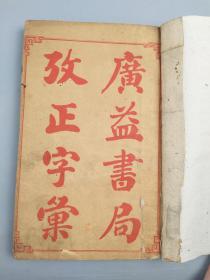 廣益書局
攷正字彙